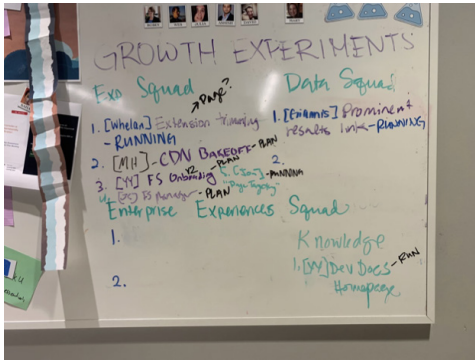 GROWTH EXPERIMENTS
Exo Squad
Page?
1. [Whelan] Extension trimming
- RUNNING
2. [MH] - CDN BAKEOFF - PLAN
3. [YY] FS Onboarding V2 - PLAN
4. FS - PLAN
5. - RUNNING
Data Squad
1. Prominent
results link - RUNNING
2.
Enterprise Experiences Squad
1.
2.
Knowledge
1. [YY] Dev Docs - RUN
Homepage